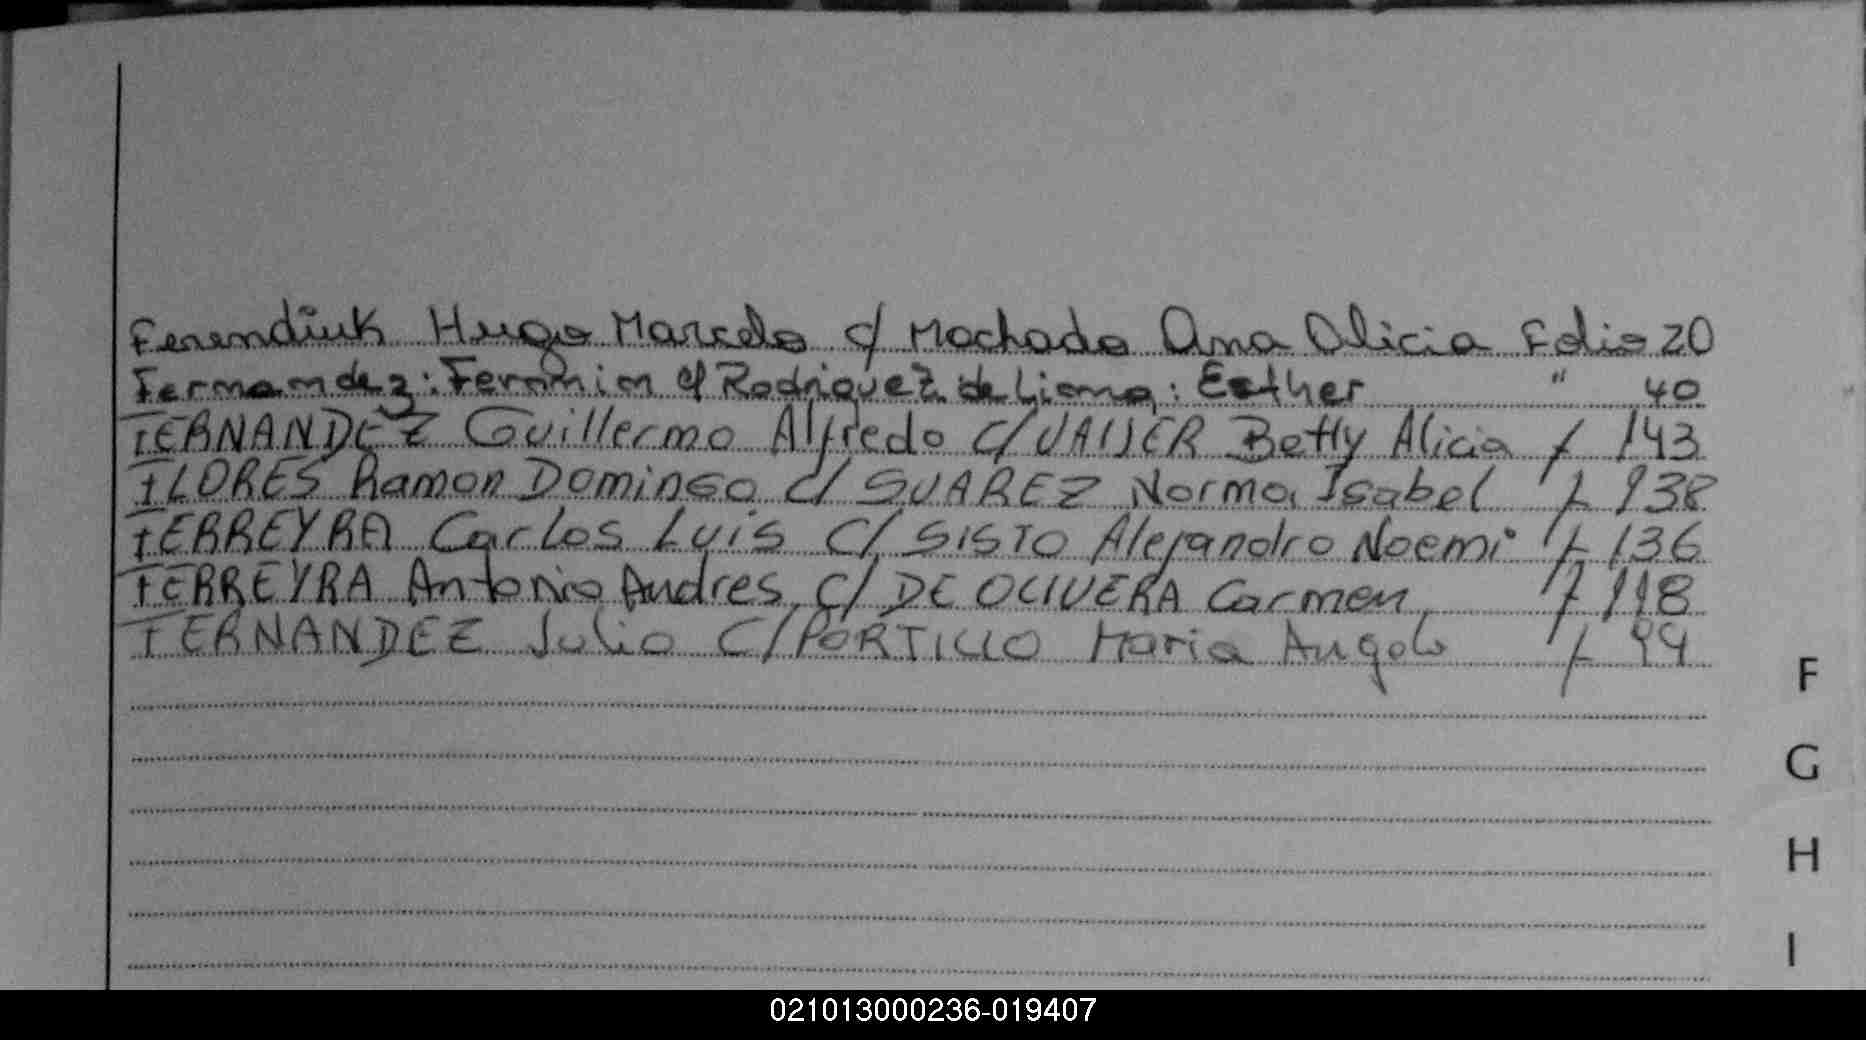 Ferendiuk Hugo Marcelo c/ Machado Ana Alicia Folio 20
Fernandez: Feromin c/ Rodriguez de Lisma: Esther " 40
FERNANDEZ Guillermo Alfredo c/ Betty Alicia f 143
FLORES Ramon Domingo c/ SUAREZ Norma Isabel f 138
FERREYRA Carlos Luis c/ SISTO Alejandro Noemi f 136
FERREYRA Antonio Andres c/ DE OLIVERA Carmen f 118
FERNANDEZ Julio c/ PORTILLO Maria Angela f 99
F
G
H
I
021013000236-019407